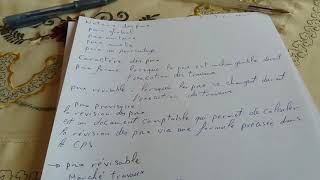 Nature des prix
prix global
prix unitaire
prix mixte
prix au pourcentage
Caractère des prix
prix ferme lorsque le prix est inchangeable durant
l'exécution des travaux
prix révisable lorsque le prix se changent durant
l'exécution des travaux
prix provisoire
la révision des prix
est un document comptable qui permet de calculer
la révision de prix via une formule précisée dans
le CPS
→ prix révisable
Marché travaux